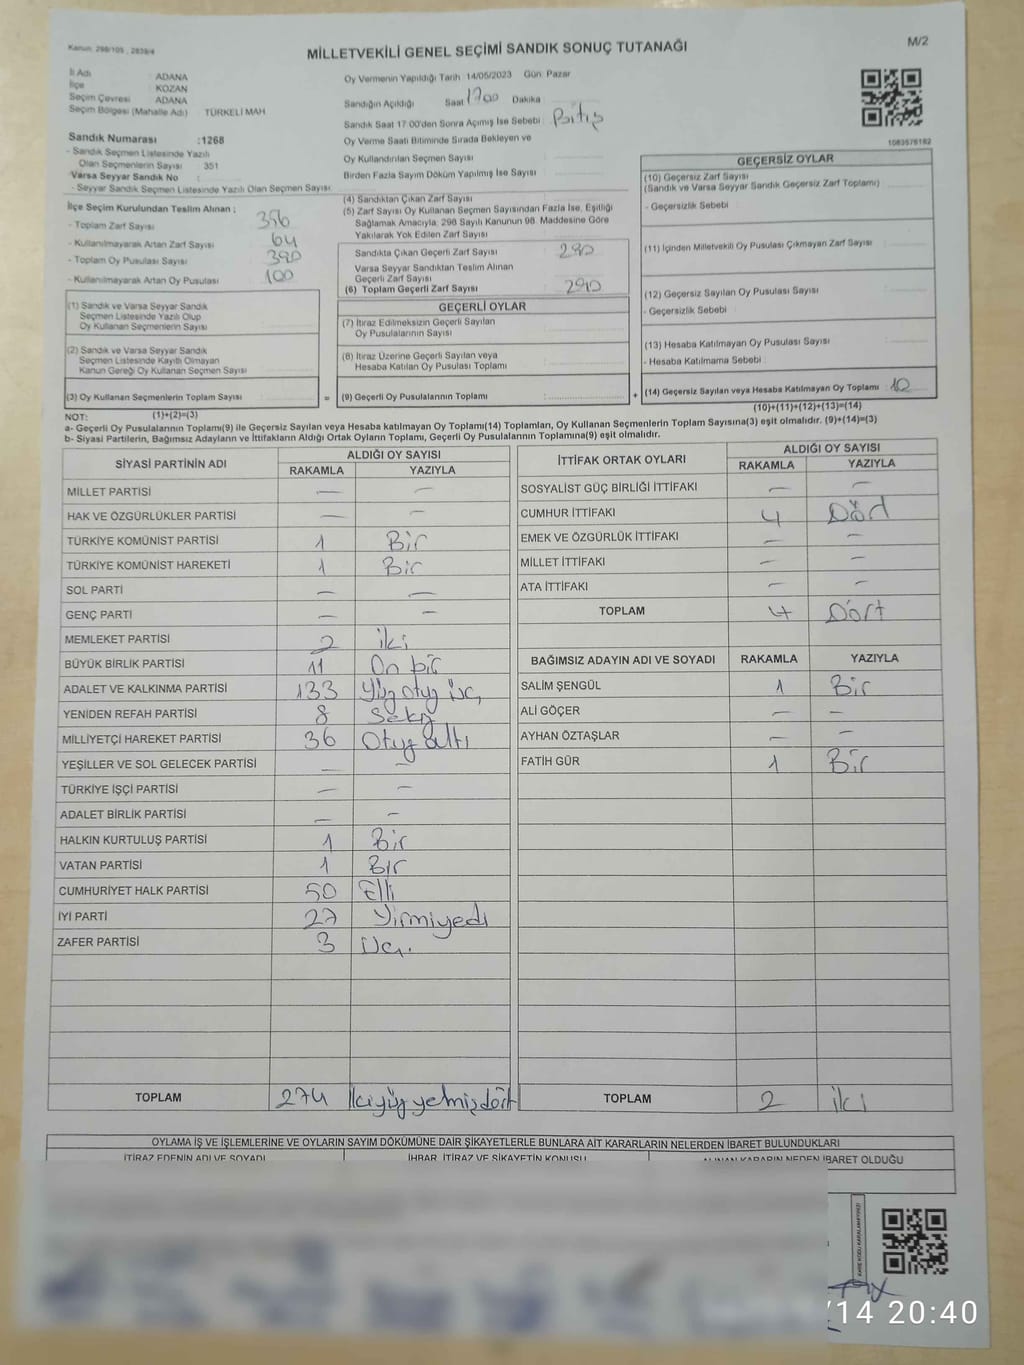 Kanun: 298/105 , 2839/4
MİLLETVEKİLİ GENEL SEÇİMİ SANDIK SONUÇ TUTANAĞI
M/2
İl Adı : ADANA
İlçe : KOZAN
Seçim Çevresi : ADANA
Seçim Bölgesi (Mahalle Adı) : TÜRKELİ MAH
Sandık Numarası :1268
- Sandık Seçmen Listesinde Yazılı
Olan Seçmenlerin Sayısı : 351
Varsa Seyyar Sandık No :
- Seyyar Sandık Seçmen Listesinde Yazılı Olan Seçmen Sayısı:
Oy Vermenin Yapıldığı Tarih :14/05/2023 Gün: Pazar
Sandığın Açıldığı Saat 1700 Dakika
Sandık Saat 17:00'den Sonra Açımış İse Sebebi : Bitiş
Oy Verme Saati Bitiminde Sırada Bekleyen ve
Oy Kullandırılan Seçmen Sayısı
Birden Fazla Sayım Döküm Yapılmış İse Sayısı
1083576182
İlçe Seçim Kurulundan Teslim Alınan :
- Toplam Zarf Sayısı : 356
- Kullanılmayarak Artan Zarf Sayısı : 64
- Toplam Oy Pusulası Sayısı : 390
- Kullanılmayarak Artan Oy Pusulası : 100
(1) Sandık ve Varsa Seyyar Sandık
Seçmen Listesinde Yazılı Olup
Oy Kullanan Seçmenlerin Sayısı
(2) Sandık ve Varsa Seyyar Sandık
Seçmen Listesinde Kayıtlı Olmayan
Kanun Gereği Oy Kullanan Seçmen Sayısı
(3) Oy Kullanan Seçmenlerin Toplam Sayısı
(1)+(2)=(3)
(4) Sandıktan Çıkan Zarf Sayısı
(5) Zarf Sayısı Oy Kullanan Seçmen Sayısından Fazla İse, Eşitliği
Sağlamak Amacıyla; 298 Sayılı Kanunun 98. Maddesine Göre
Yakılarak Yok Edilen Zarf Sayısı
Sandıkta Çıkan Geçerli Zarf Sayısı 290
Varsa Seyyar Sandıktan Teslim Alınan
Geçerli Zarf Sayısı
(6) Toplam Geçerli Zarf Sayısı : 290
GEÇERLİ OYLAR
(7) İtiraz Edilmeksizin Geçerli Sayılan
Oy Pusulalarının Sayısı
(8) İtiraz Üzerine Geçerli Sayılan veya
Hesaba Katılan Oy Pusulası Toplamı
= (9) Geçerli Oy Pusulalarının Toplamı
GEÇERSİZ OYLAR
(10) Geçersiz Zarf Sayısı
(Sandık ve Varsa Seyyar Sandık Geçersiz Zarf Toplamı)
- Geçersizlik Sebebi
(11) İçinden Milletvekili Oy Pusulası Çıkmayan Zarf Sayısı
(12) Geçersiz Sayılan Oy Pusulası Sayısı
- Geçersizlik Sebebi
(13) Hesaba Katılmayan Oy Pusulası Sayısı
- Hesaba Katılmama Sebebi
+ (14) Geçersiz Sayılan veya Hesaba Katılmayan Oy Toplamı : 10
(10)+(11)+(12)+(13)=(14)
NOT:
a- Geçerli Oy Pusulalarının Toplamı(9) ile Geçersiz Sayılan veya Hesaba katılmayan Oy Toplamı(14) Toplamları, Oy Kullanan Seçmenlerin Toplam Sayısına(3) eşit olmalıdır. (9)+(14)=(3)
b- Siyasi Partilerin, Bağımsız Adayların ve İttifakların Aldığı Ortak Oyların Toplamı, Geçerli Oy Pusulalarının Toplamına(9) eşit olmalıdır.
SİYASİ PARTİNİN ADI ALDIĞI OY SAYISI
RAKAMLA YAZIYLA
MİLLET PARTİSİ — —
HAK VE ÖZGÜRLÜKLER PARTİSİ — —
TÜRKİYE KOMÜNİST PARTİSİ 1 Bir
TÜRKİYE KOMÜNİST HAREKETİ 1 Bir
SOL PARTİ — —
GENÇ PARTİ — —
MEMLEKET PARTİSİ 2 iki
BÜYÜK BİRLİK PARTİSİ 11 On bir
ADALET VE KALKINMA PARTİSİ 133 Yüz otuz üç
YENİDEN REFAH PARTİSİ 8 Sekiz
MİLLİYETÇİ HAREKET PARTİSİ 36 Otuz altı
YEŞİLLER VE SOL GELECEK PARTİSİ — —
TÜRKİYE İŞÇİ PARTİSİ — —
ADALET BİRLİK PARTİSİ — —
HALKIN KURTULUŞ PARTİSİ 1 Bir
VATAN PARTİSİ 1 Bir
CUMHURİYET HALK PARTİSİ 50 Elli
İYİ PARTİ 27 Yirmiyedi
ZAFER PARTİSİ 3 Üç.
TOPLAM 274 İkiyüz yetmişdört
İTTİFAK ORTAK OYLARI ALDIĞI OY SAYISI
RAKAMLA YAZIYLA
SOSYALİST GÜÇ BİRLİĞİ İTTİFAKI — —
CUMHUR İTTİFAKI 4 Dört
EMEK VE ÖZGÜRLÜK İTTİFAKI — —
MİLLET İTTİFAKI — —
ATA İTTİFAKI — —
TOPLAM 4 Dört
BAĞIMSIZ ADAYIN ADI VE SOYADI RAKAMLA YAZIYLA
SALİM ŞENGÜL 1 Bir
ALİ GÖÇER — —
AYHAN ÖZTAŞLAR — —
FATİH GÜR 1 Bir
TOPLAM 2 iki
OYLAMA İŞ VE İŞLEMLERİNE VE OYLARIN SAYIM DÖKÜMÜNE DAİR ŞİKAYETLERLE BUNLARA AİT KARARLARIN NELERDEN İBARET BULUNDUKLARI
İTİRAZ EDENİN ADI VE SOYADI İHBAR, İTİRAZ VE ŞİKAYETİN KONUSU ALINAN KARARIN NEDEN İBARET OLDUĞU
/14 20:40